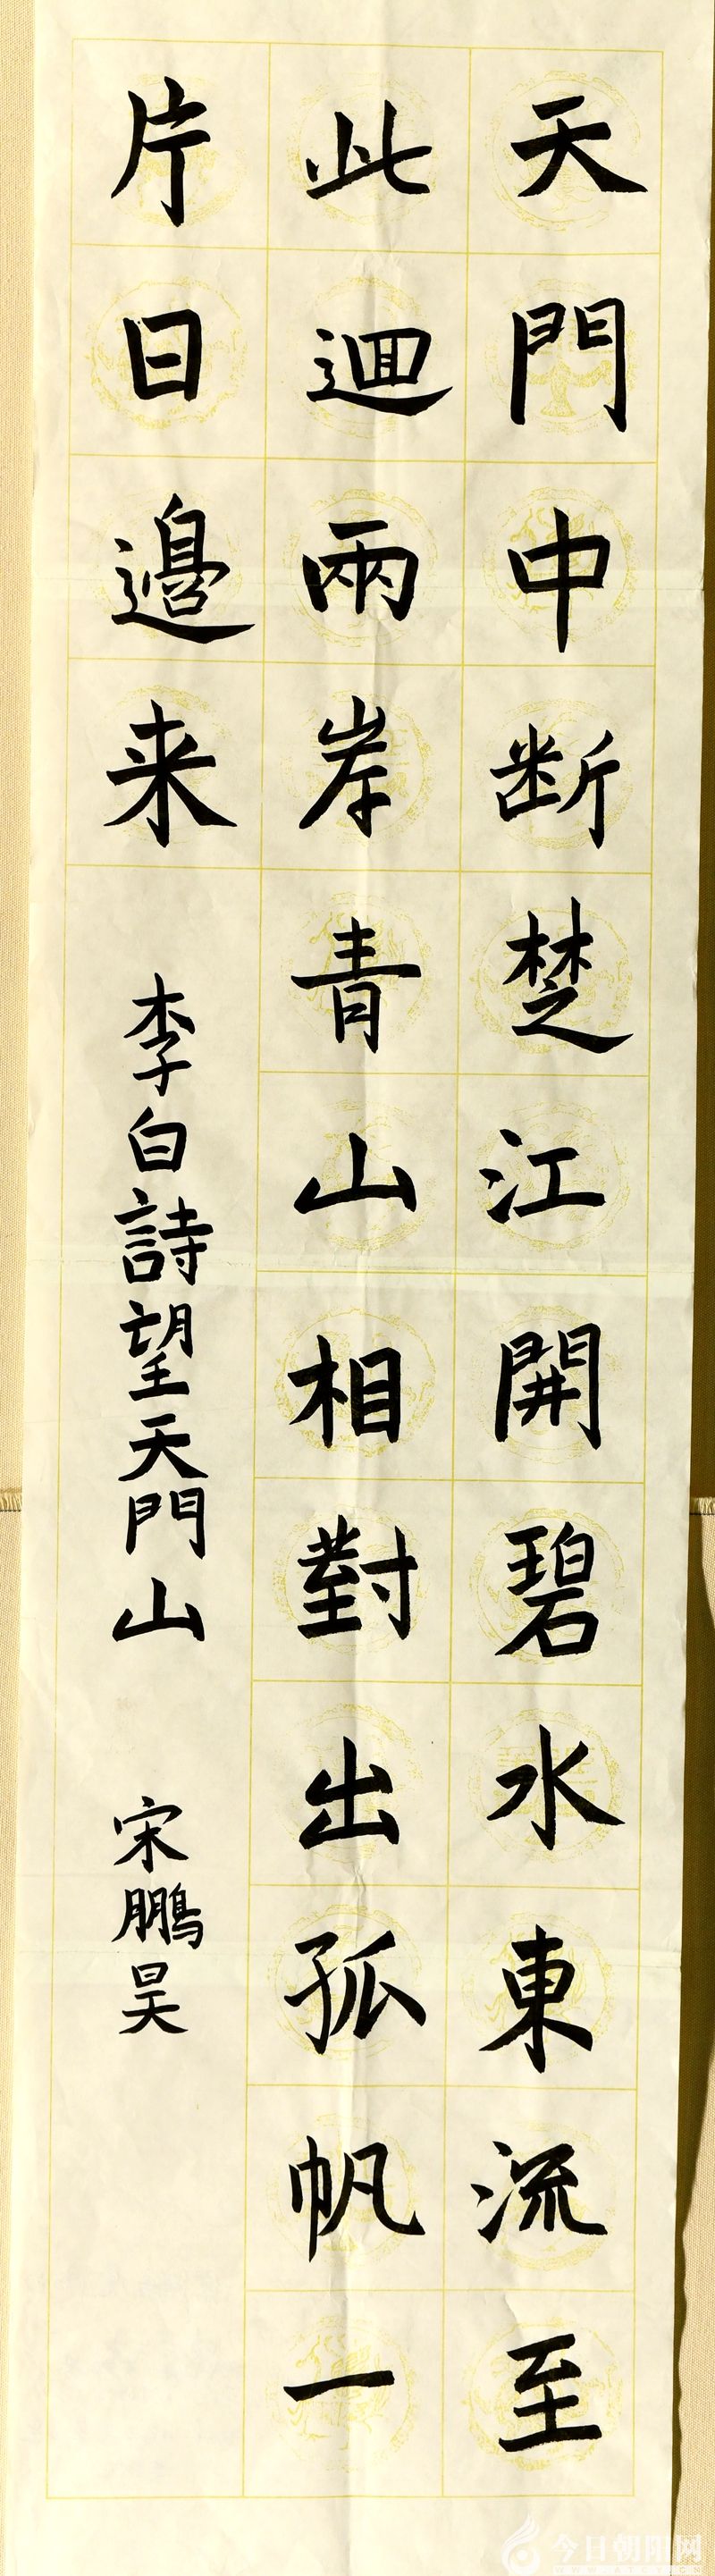 天門中断楚江開碧水東流至
此迴兩岸青山相對出孤帆一
片日邊来
李白詩望天門山 宋鵬昊
今日朝阳网